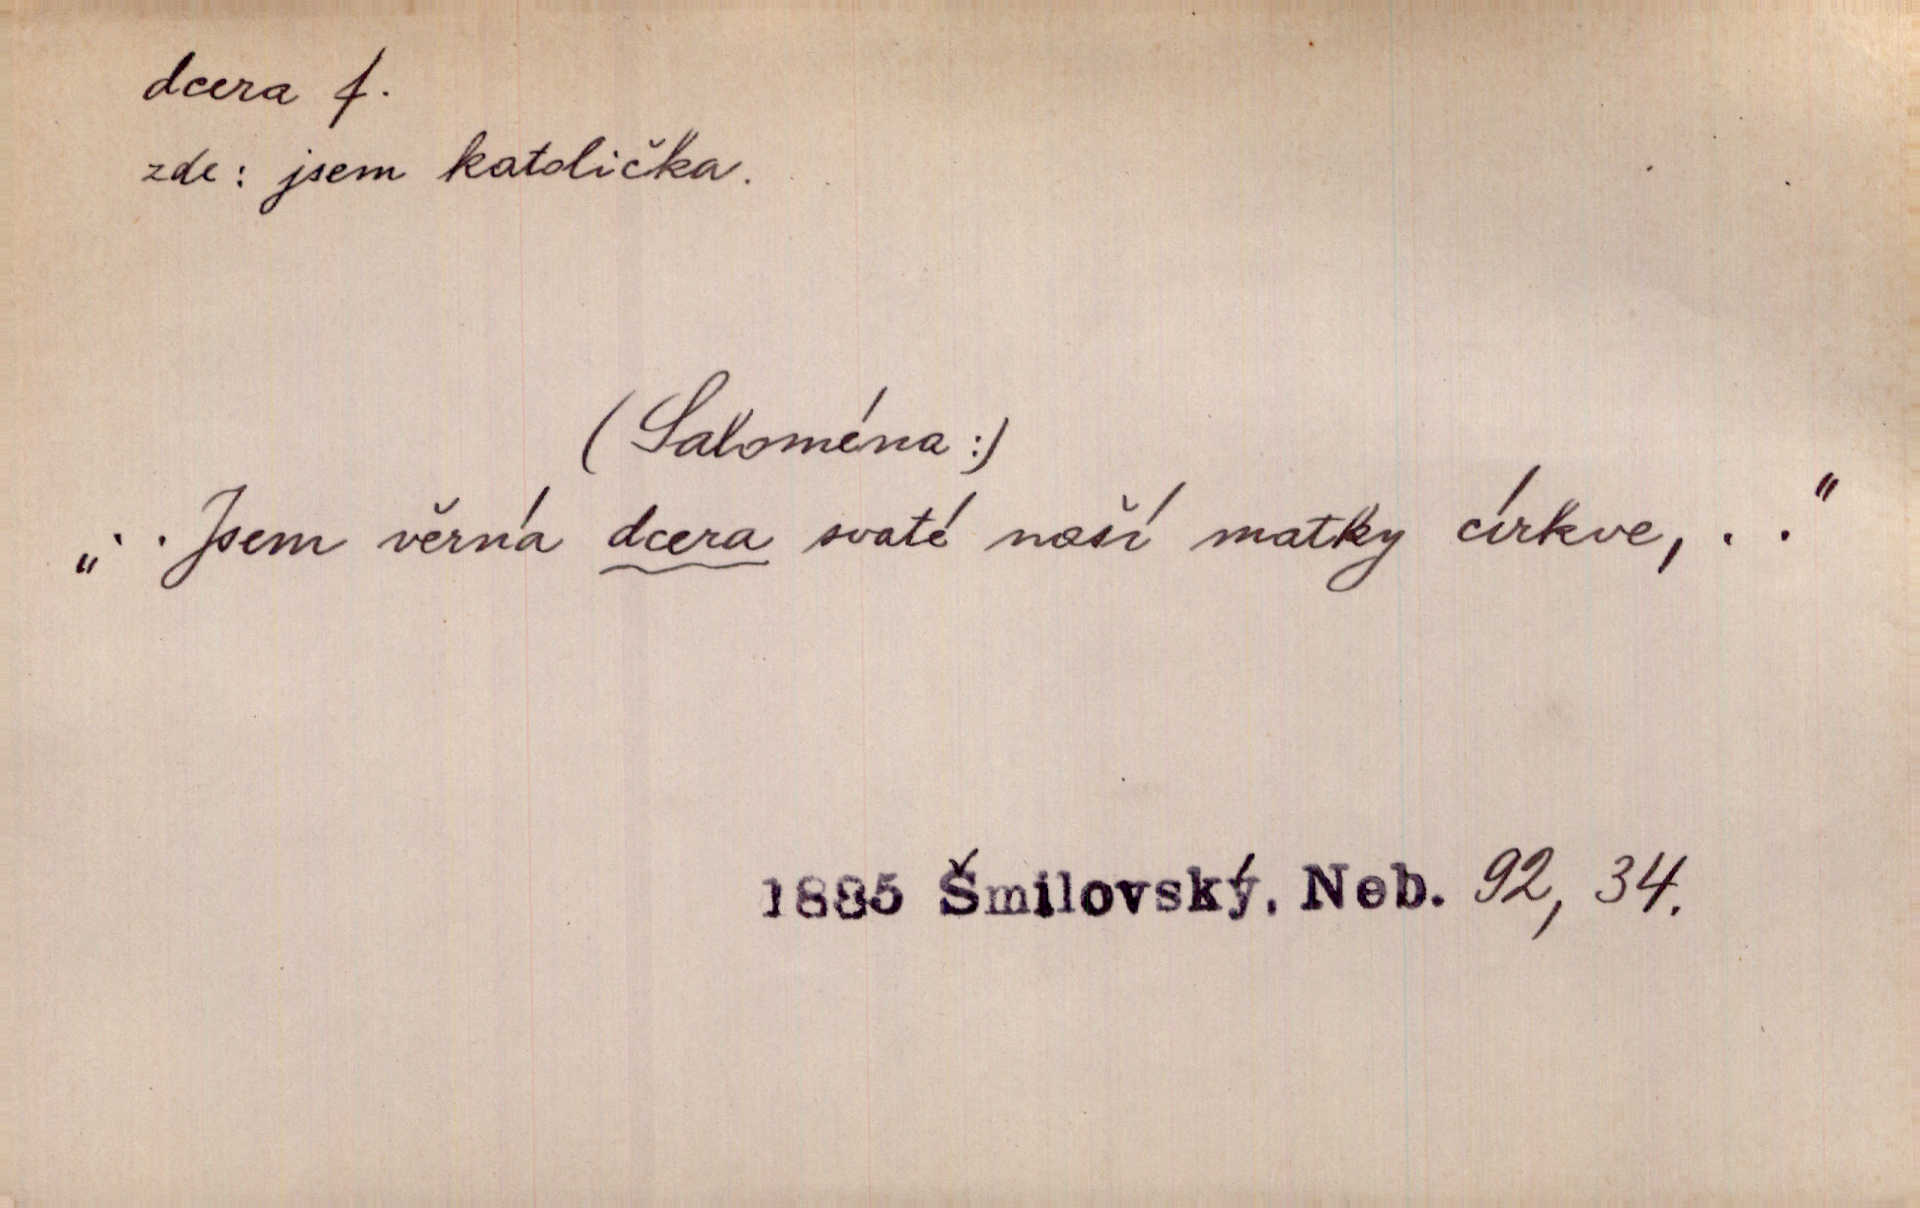 dcera f.
zde: jsem katolička.
(Saloména:)
„. . Jsem věrná dcera svaté naší matky církve, . ."
1885 Šmilovský, Neb. 92, 34.